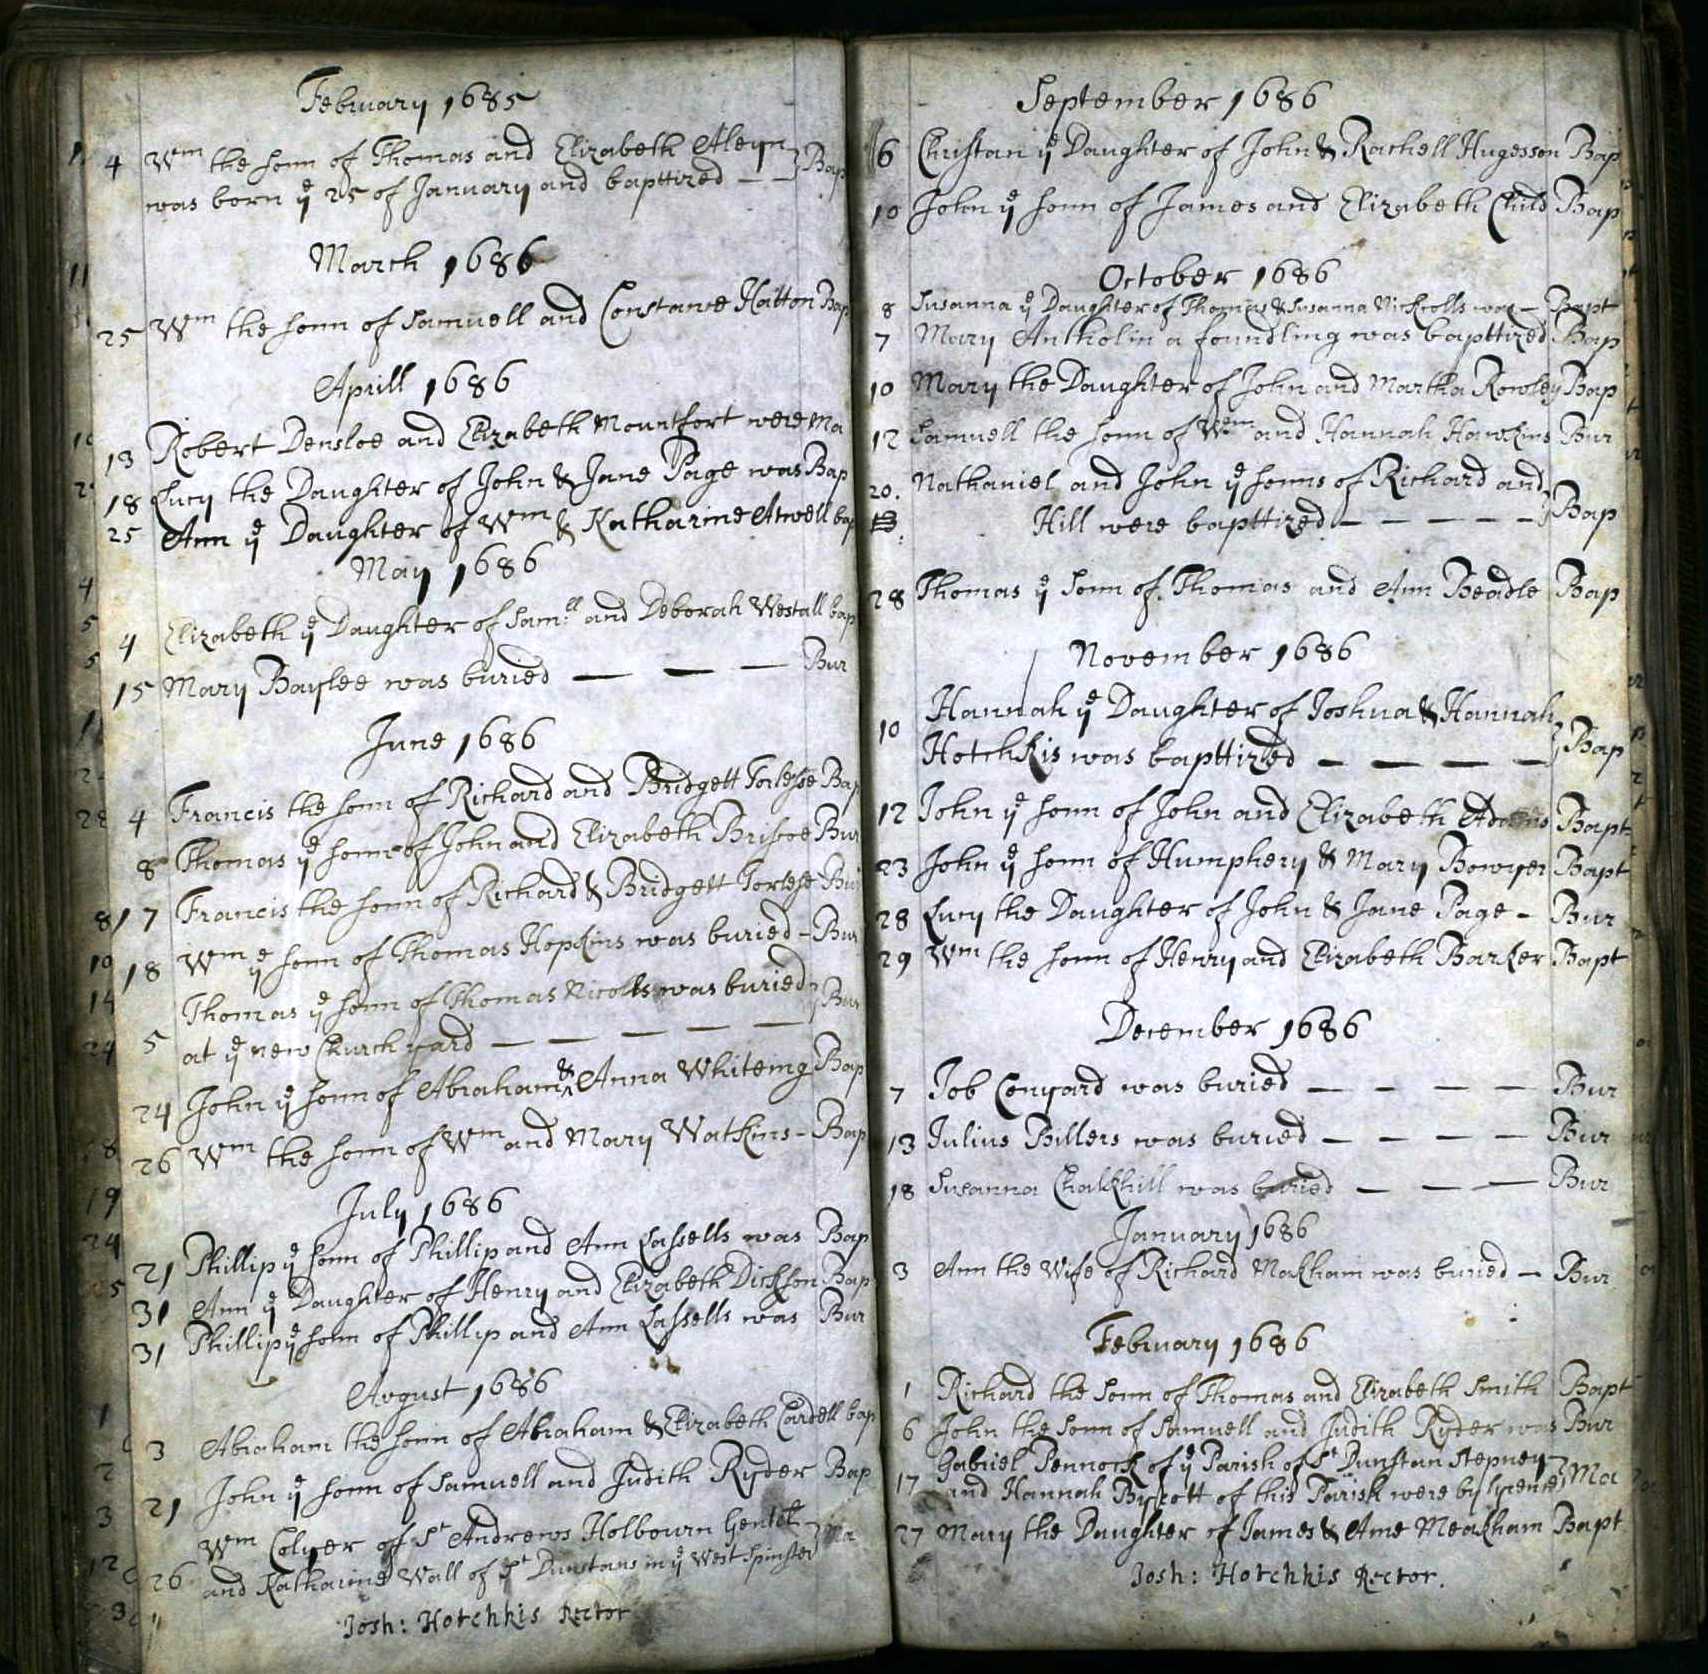 February 1685
4 Wm the sonn of Thomas and Elizabeth Aleyn
was born ye 25 of January and bapttized — — Bap
March 1686
25 Wm the sonn of Samuell and Constance Hatton Bap
Aprill 1686
13 Robert Densloe and Elizabeth Mountfort were Ma
18 Lucy the Daughter of John & Jane Page was Bap
25 Ann ye Daughter of Wm & Katharine Atwell bap
May 1686
4 Elizabeth ye Daughter of Sam:ll and Deborah Westall bap
15 Mary Bayslee was buried — — — Bur
June 1686
4 Francis the sonn of Richard and Bridgett Bap
8 Thomas ye sonn of John and Elizabeth Briscoe Bur
17 Francis the sonn of Richard & Bridgett Bur
18 Wm ye sonn of Thomas Hopkins was buried - Bur
Thomas ye sonn of Thomas Nicolls was buried Bur
5 at ye new Church yard — — — — —
24 John ye sonn of Abraham & Anna Whiteing Bap
26 Wm the sonn of Wm and Mary Watkins - Bap
July 1686
21 Phillip ye sonn of Phillip and Ann Lassells was Bap
31 Ann ye Daughter of Henry and Elizabeth Dickson Bap
31 Phillip ye sonn of Phillip and Ann Lassells was Bur
August 1686
3 Abraham the sonn of Abraham & Elizabeth Cardell bap
21 John ye sonn of Samuell and Judith Ryder Bap
Wm Colyer of St Andrews Holbourn Gentle Ma
26 and Katharine Wall of St Dunstans in ye West Spinster
Josh: Hotchkis Rector
September 1686
6 Christan ye Daughter of John & Rachell Hugesson Bap
10 John ye sonn of James and Elizabeth Child Bap
October 1686
8 Susanna ye Daughter of Thomas & Susanna Nickolls was — Bapt
7 Mary Antholin a foundling was bapttized Bap
10 Mary the Daughter of John and Martha Rowley Bap
12 Samuell the sonn of Wm and Hannah Hawkins Bur
20. Nathaniel and John ye sonns of Richard and
Hill were bapttized — — — — — Bap
28 Thomas ye Sonn of Thomas and Ann Beadle Bap
November 1686
10 Hannah ye Daughter of Joshua & Hannah
Hotchkis was bapttized — — — — Bap
12 John ye sonn of John and Elizabeth Adams Bapt
23 John ye sonn of Humphery & Mary Bowyer Bapt
28 Lucy the Daughter of John & Jane Page - Bur
29 Wm the sonn of Henry and Elizabeth Barker Bapt
December 1686
7 Job Conyard was buried — — — — Bur
13 Julius Billers was buried — — — — Bur
18 Susanna Chalkhill was buried — — — Bur
January 1686
3 Ann the Wife of Richard Makham was buried — Bur
February 1686
1 Richard the Sonn of Thomas and Elizabeth Smith Bapt
6 John the Sonn of Samuell and Judith Ryder was Bur
Gabriel Pennock of ye Parish of St Dunstan Stepney
17 and Hannah of this Parish were by lycence Ma
27 Mary the Daughter of James & Ame Meakham Bapt
Josh: Hotchkis Rector.